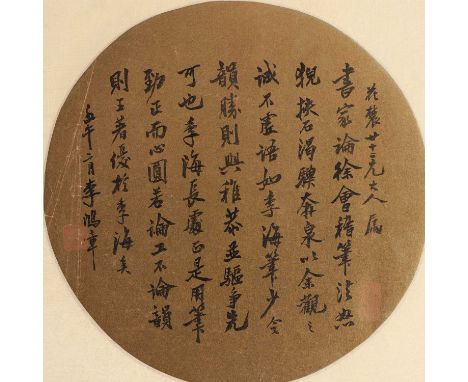 農廿三兄大人属
書家論徐會稽筆法怒
猊抉石渴驥奔泉以余觀之
誠不虛語如季海筆少令
韻勝則與稚恭並驅爭先
可也季海長處正是用筆
勁正而心圓若論工不論韻
則王著優於季海矣
午二月李鴻章